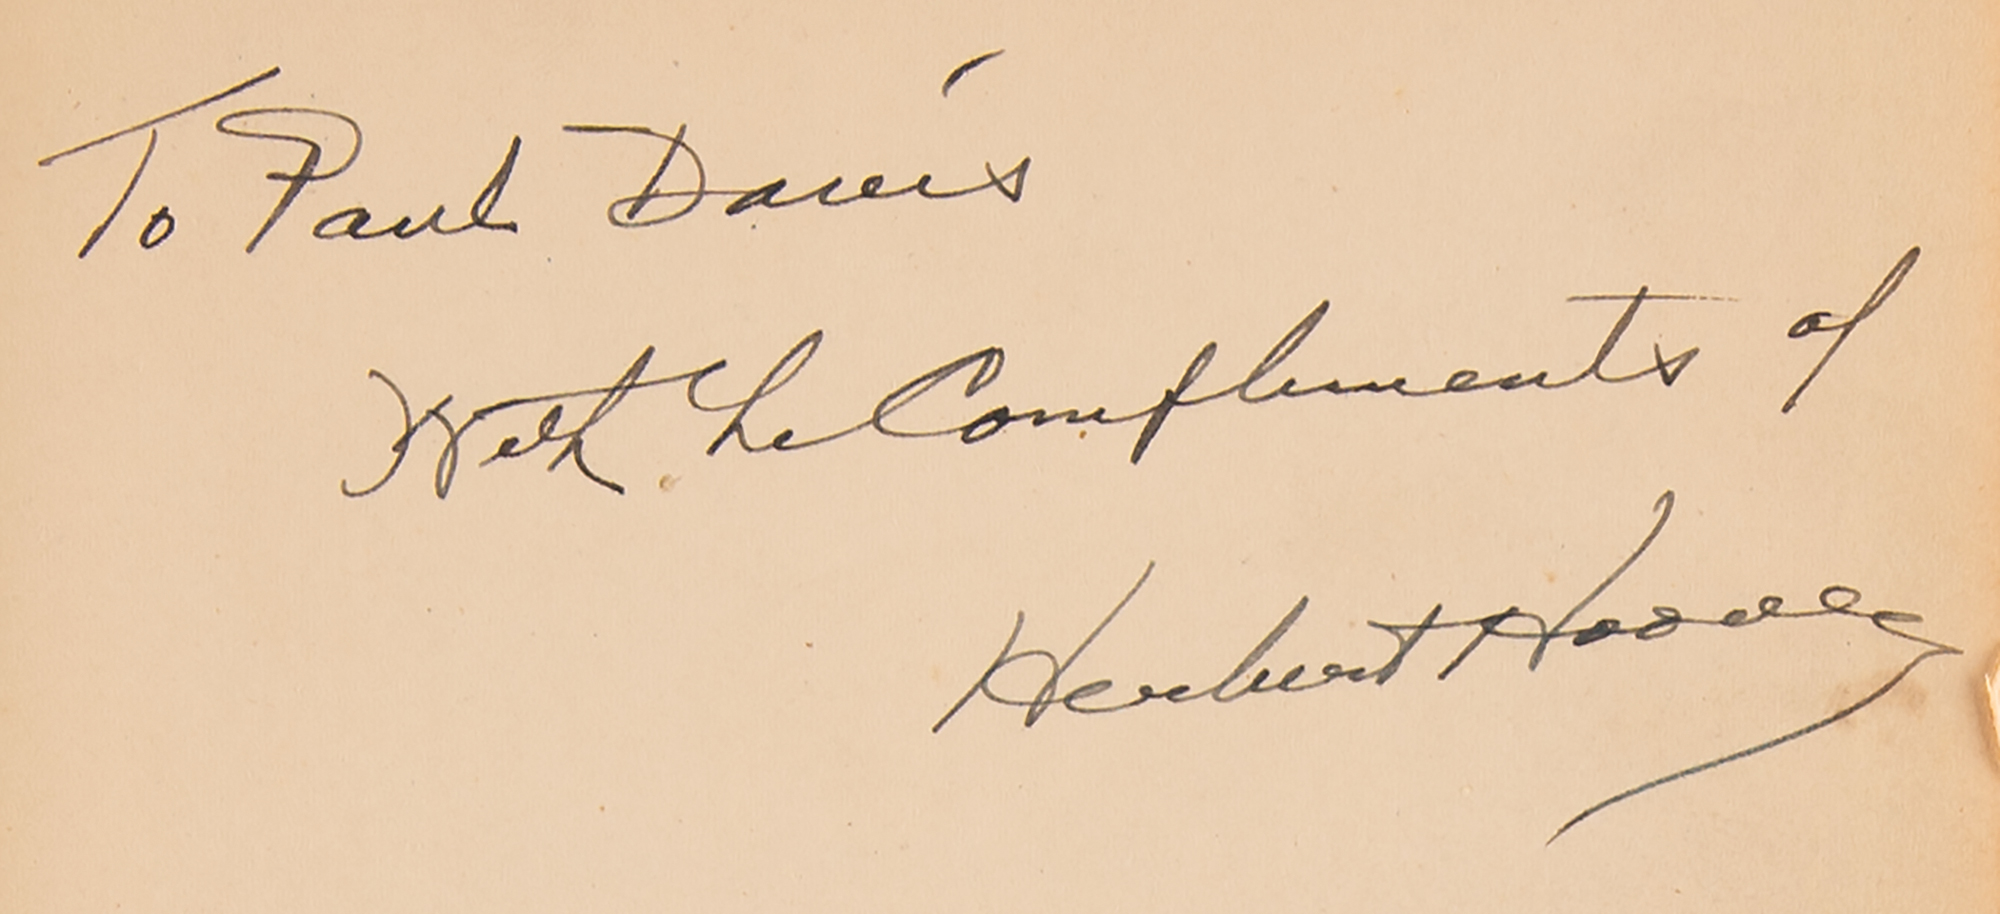 To Paul Davis
With the Compliments of
Herbert Hoover